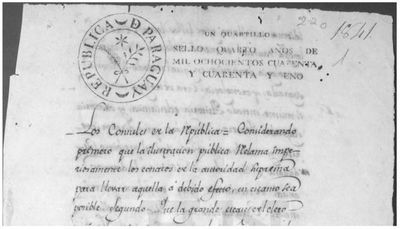 220
1841
1
REPUBLICA D PARAGUAY
UN QUARTILLO
SELLO QUARTO AÑOS DE
MIL OCHOCIENTOS CUARENTA,
Y CUARENTA Y UNO
Los Consules de la República = Considerando
primero que la ilustracion publica reclama impe
riosamente los conatos de la autoridad Suprema
para llevar aquella á debido efecto, en cuanto sea
posible. Segundo = Que la grande escasez de clero